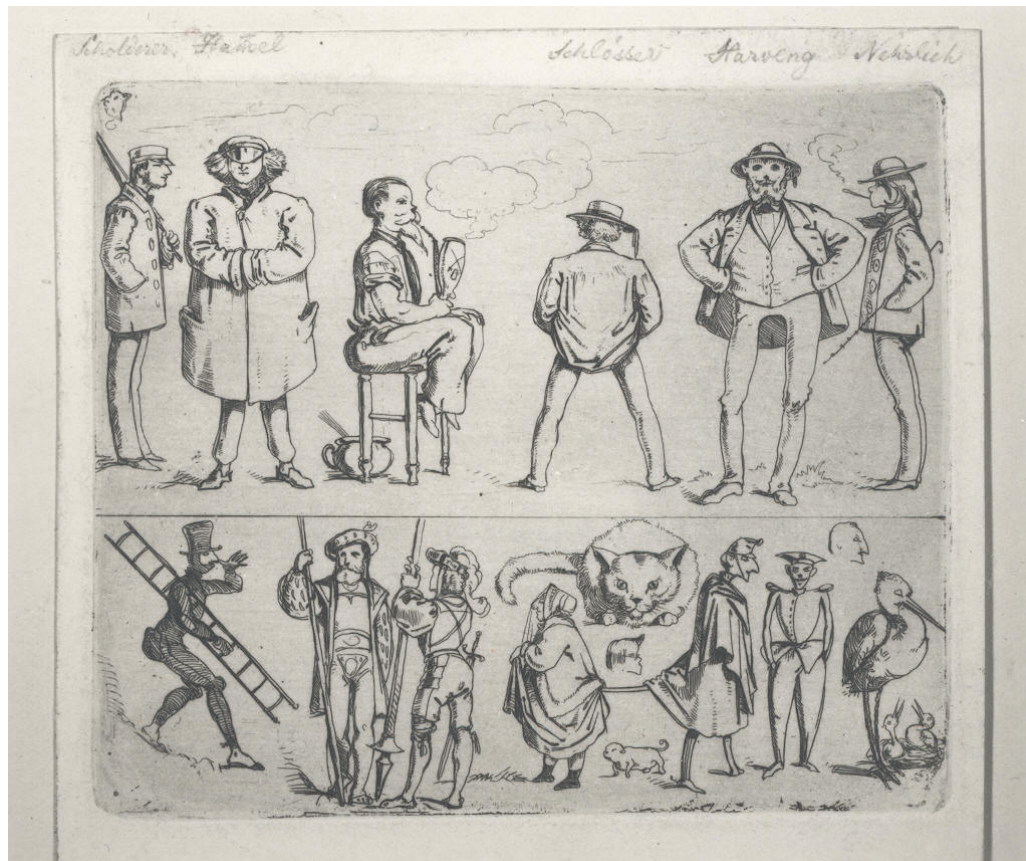 Scholderer. Hamel Schlösser Harveng Nehrlich